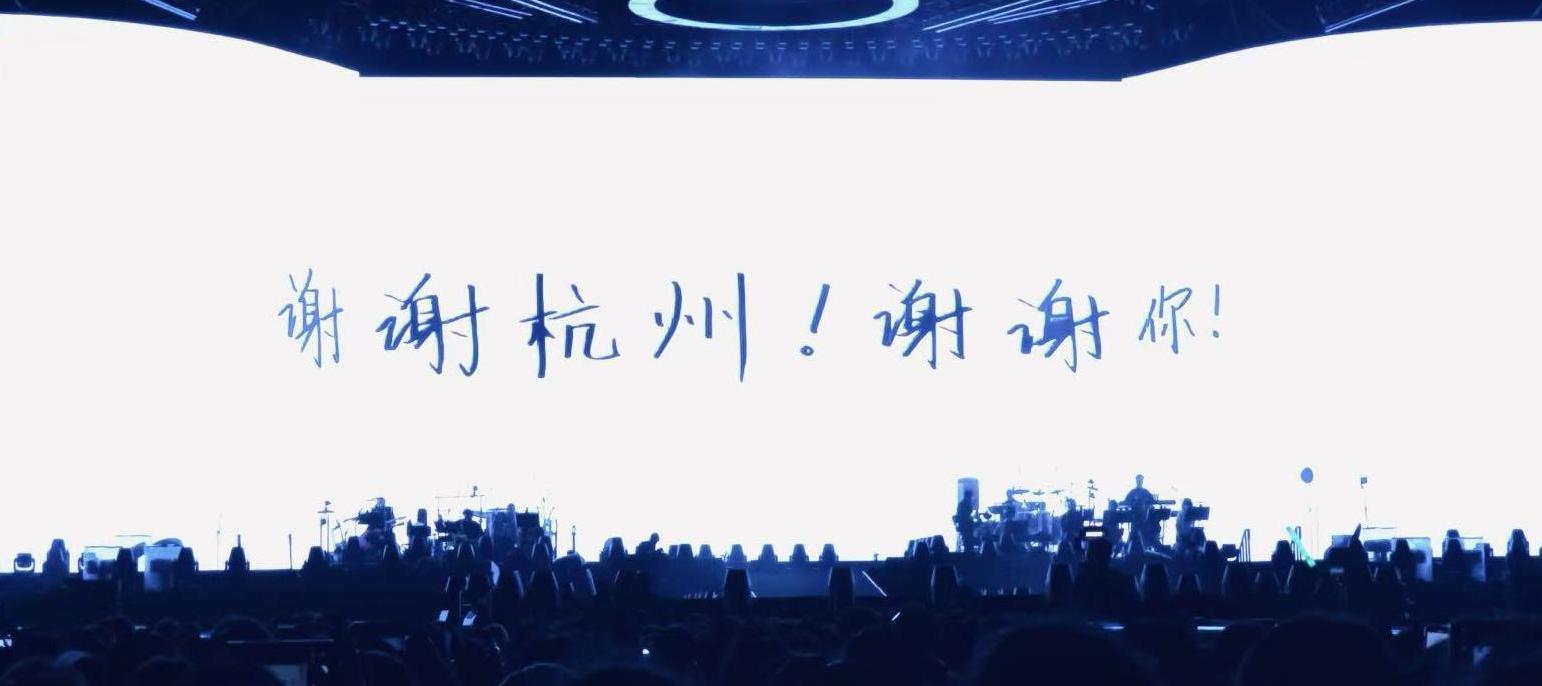 谢谢杭州！谢谢你！